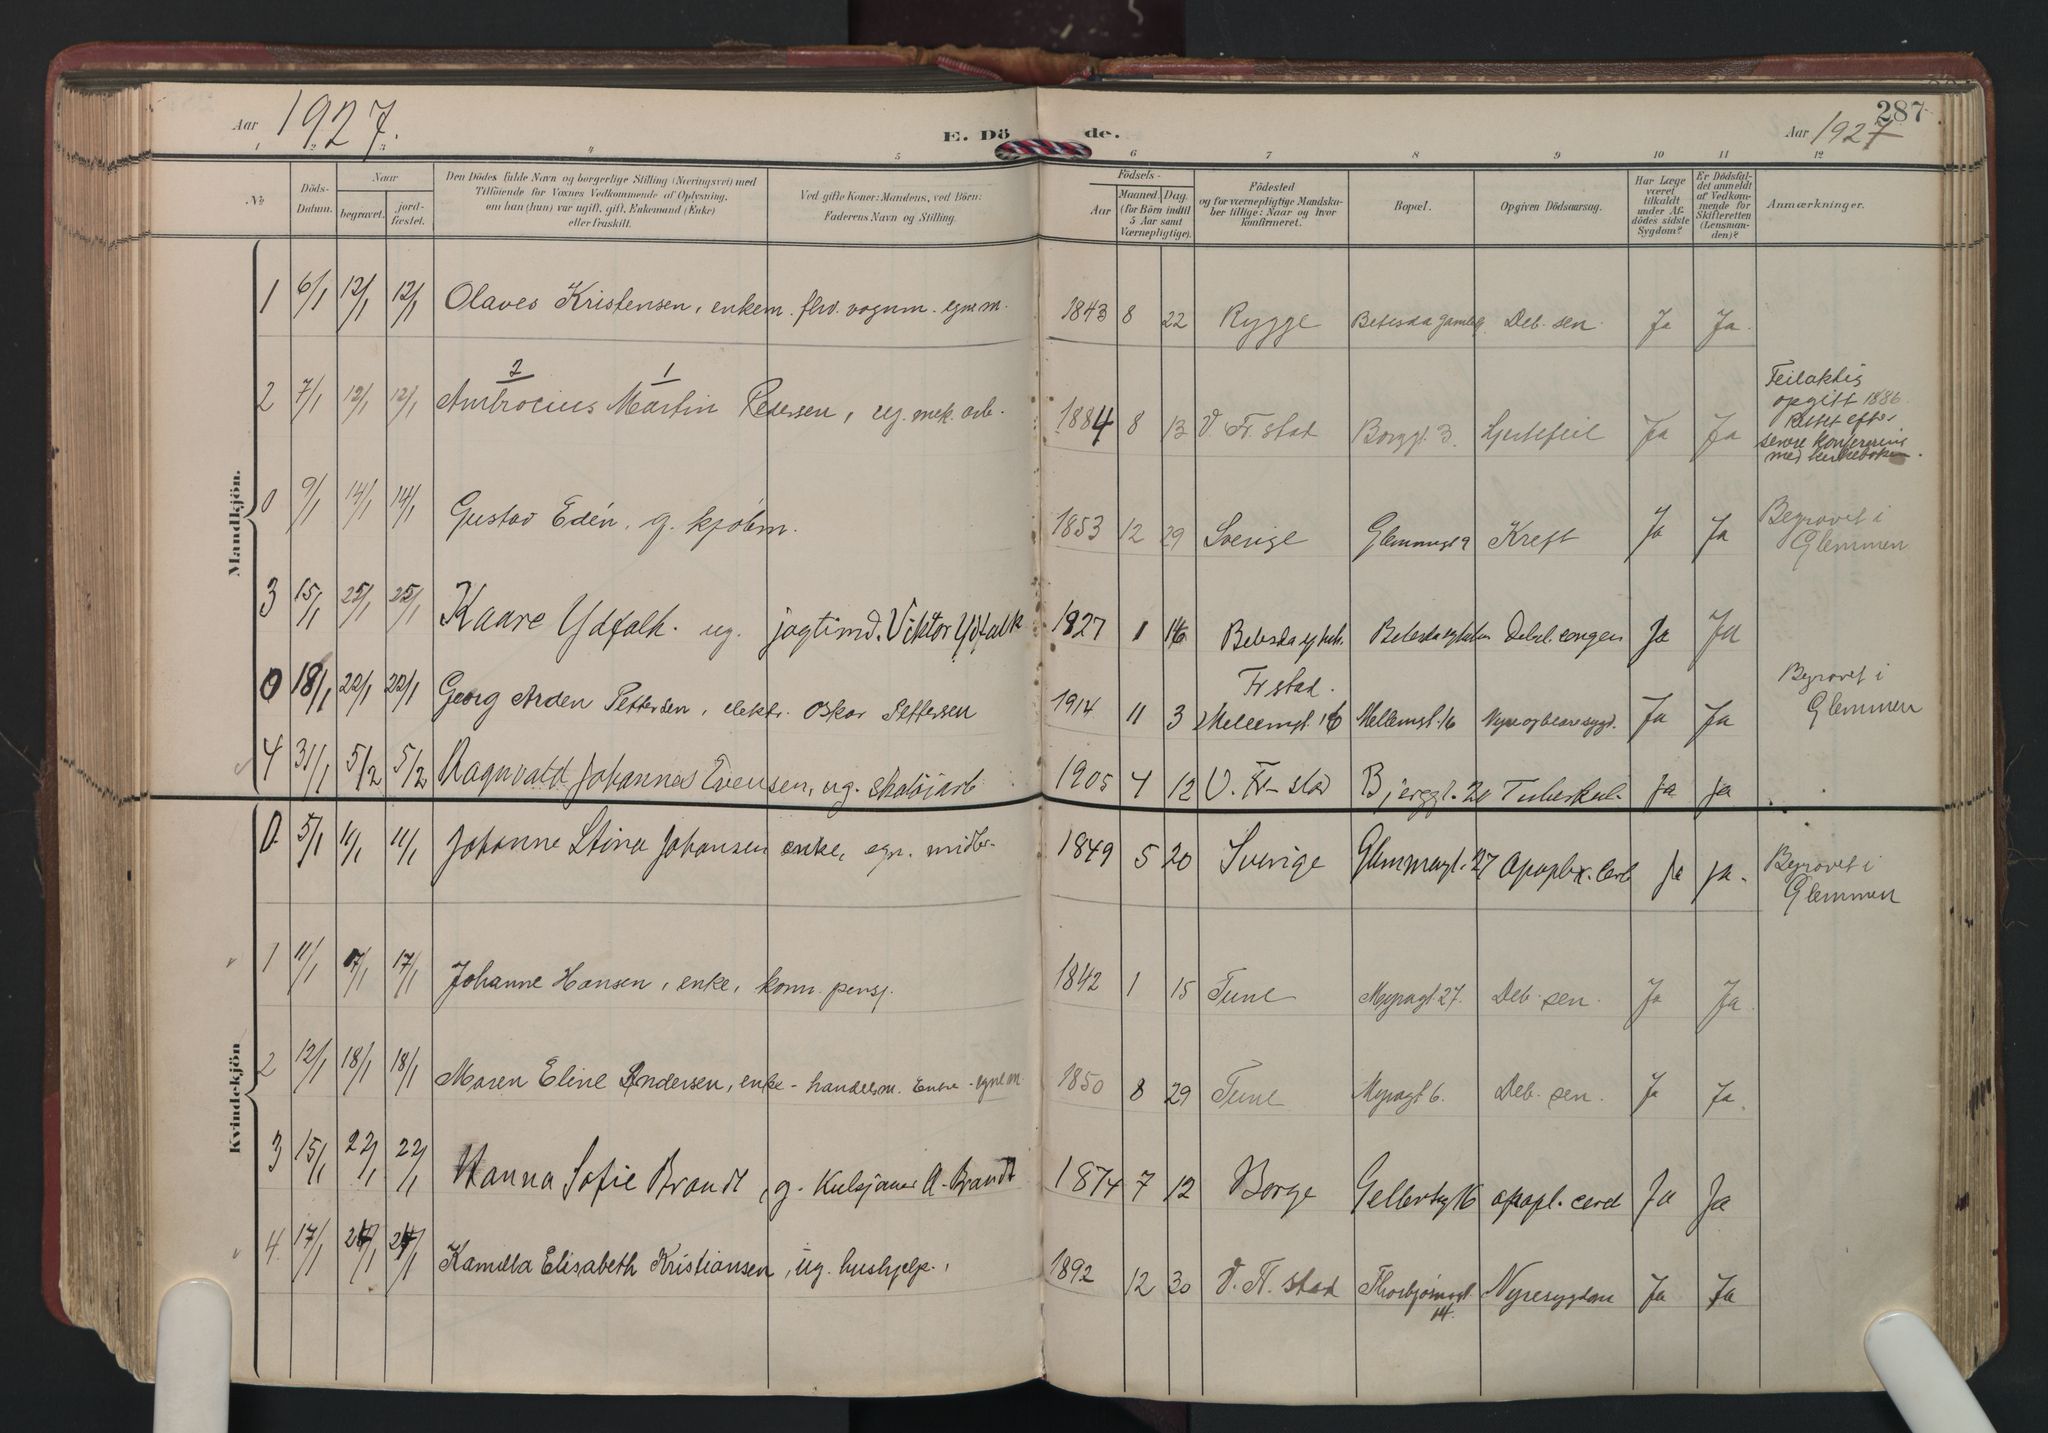 Aar 1927.
E. Döde.
Aar 1927
287
1 2 3 4 5 6 7 8 9 10 11 12
No
Döds-Datum.
Naar
begravet.
jordfæstet.
Den Dödes fulde Navn og borgerlige Stilling (Næringsvei) med
Tilföiende for Voxnes Vedkommende af Oplysning,
om han (hun) var ugift, gift, Enkemand (Enke)
eller fraskilt.
Ved gifte Koner: Mandens, ved Börn:
Faderens Navn og Stilling.
Födsels-
Aar
Maaned. Dag.
(for Börn indtil
5 Aar samt
Værnepligtige).
Födested
og for værnepligtige Mandskaber tillige: Naar og hvor
konfirmeret.
Bopæl.
Opgiven Dödsaarsag.
Har Læge været tilkaldt under Afdödes sidste Sygdom?
Er Dödsfaldet anmeldt af Vedkommende for Skifteretten (Lensmanden)?
Anmærkninger.
Mandkjön.
1 6/1 12/1 12/1 Olaves Kristensen, enkem. fhv. vognm. egne m. 1843 8 22 Rygge Betesda gamleh Deb. sen. Ja Ja.
2 1
2 7/1 12/1 12/1 Ambrocius Martin Pedersen, ug. mek. arb. 1884 8 13 V. Fr. stad Borggt. 3. Hjertefeil Ja Ja
Feilaktig
opgitt 1886.
Rettet efter
senere konferering
med kirkeboken.
0 9/1 14/1 14/1 Gustav Edén, g. kjøbm. 1853 12 29 Sverige Glemmegt 9 Kreft Ja Ja Begravet i
Glemmen
3 15/1 25/1 25/1 Kaare Ydfalk. ug. jagtimd. Viktor Ydfalk 1927 1 Betesda sykeh. Betesda sykehus Debil. congen Ja Ja
Fr stad.
0 18/1 22/1 22/1 Georg Arden Pettersen, elektr. Oskar Pettersen 1914 11 3 Mellemgt. 16 Mellemgt. 16 Nyre og blæresygd. Ja Ja Begravet i
Glemmen
4 31/1 5/2 5/2 Ragnvald Johannes Evensen, ug. skotøiarb 1905 4 12 V. Fr-stad Bjerggt. 20 Tuberkul. Ja Ja
Kvindekjön
0. 5/1 11/1 11/1 Johanne Stina Johansen enke, egn. midler. 1849 5 20 Sverige Glemmegt. 27 Apoplex. cereb Ja Ja. Begravet i
Glemmen
1 11/1 17/1 17/1 Johanne Hansen, enke, kom. pensj. 1842 1 15 Tune Myragt 27. Deb. sen. Ja Ja.
2 12/1 18/1 18/1 Maren Eline Andersen, enke - handelsm. Enke - egne m 1850 8 29 Tune Myragt 6. Deb. sen. Ja Ja.
3 15/1 22/1 22/1 Hanna Sofie Brandt, g. Kulsjauer A. Brandt 1874 7 12 Borge Gellertsg 16 apopl. cereb Ja Ja
4. 17/1 24/1 24/1 Kamilla Elisabeth Kristiansen, ug. hushjelp. 1892 12 30 V. Fr. stad Thorbjørnsgt.
14. Nyresygdom Ja Ja